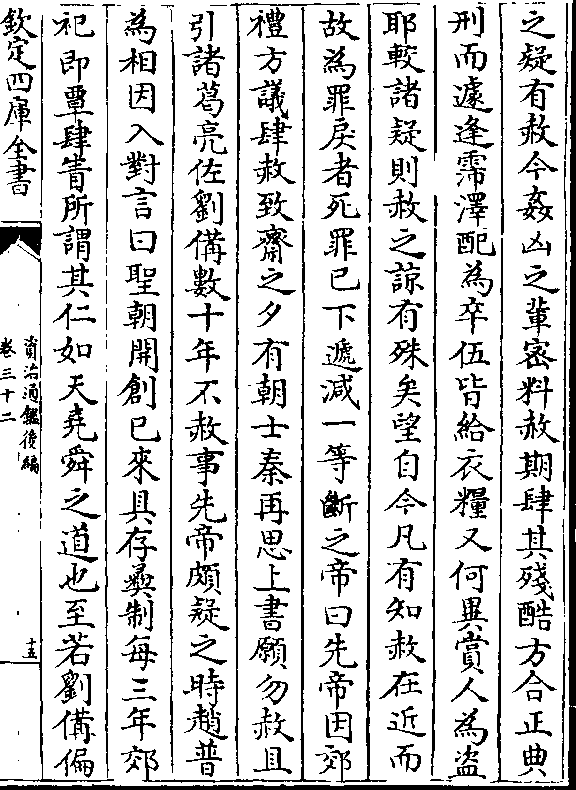 之疑有赦今姦凶之輩宻料赦期肆其殘酷方合正典
刑而遽逢霈澤配為卒伍皆給衣糧又何異賞人為盜
耶較諸疑則赦之諒有殊矣望自今凡有知赦在近而
故為罪戾者死罪已下遞減一等斷之帝曰先帝因郊
禮方議肆赦致齋之夕有朝士秦再思上書願勿赦且
引諸葛亮佐劉備數十年不赦事先帝頗疑之時趙普
為相因入對言曰聖朝開創已來具存彞制每三年郊
祀即覃肆眚所謂其仁如天堯舜之道也至若劉備偏
欽定四庫全書
資治通鑑後編
卷三十二
十五